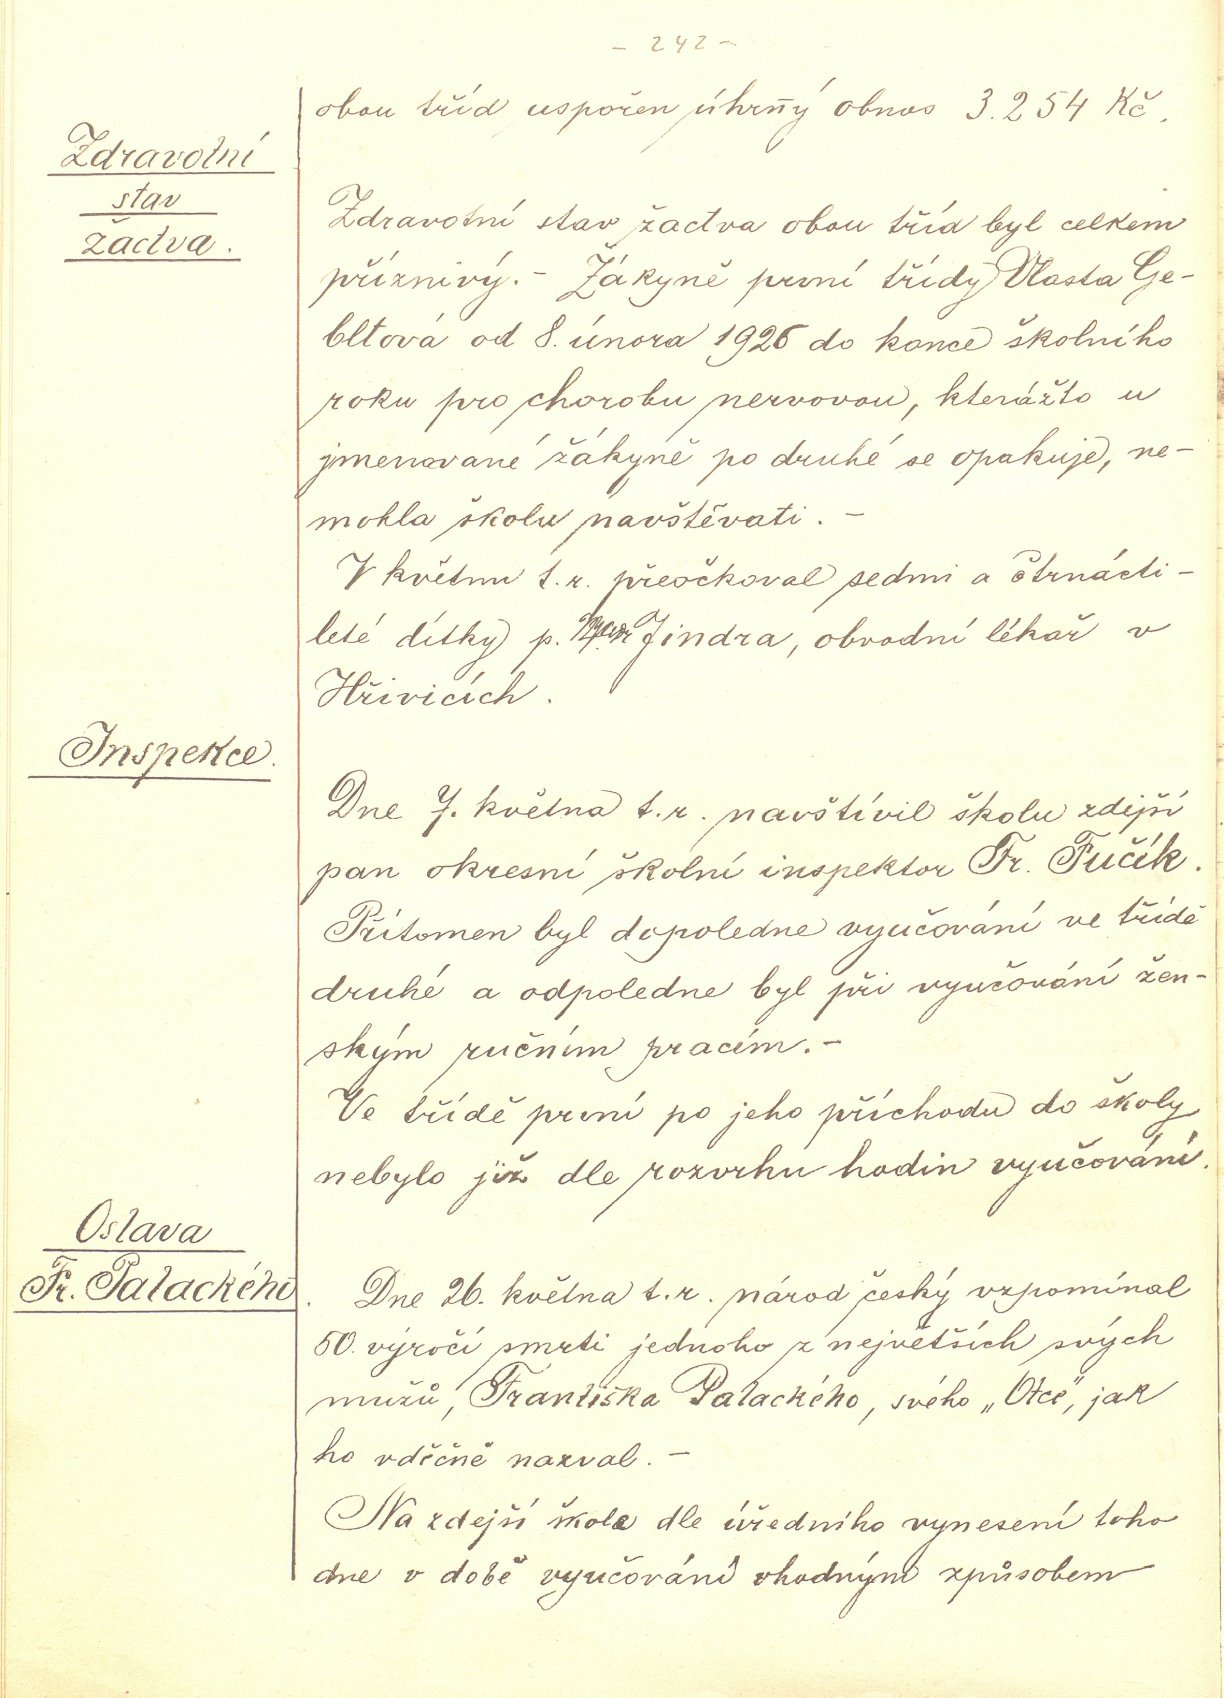 - 242 -
obou tříd uspořen úhrný obnos 3.254 Kč.
Zdravotní
stav
žactva.
Zdravotní stav žactva obou tříd byl celkem
příznivý. - Žákyně první třídy Vlasta Ge-
bltová od 8. února 1926 do konce školního
roku pro chorobu nervovou, kterážto u
jmenované žákyně po druhé se opakuje, ne-
mohla školu navštěvati. -
V květnu t.r. přeočkoval sedmi a čtrnácti-
leté dítky p. Jindra, obvodní lékař v
Hřivicích.
Inspekce.
Dne 7. května t.r. navštívil školu zdejší
pan okresní školní inspektor Fr. Fučík.
Přítomen byl dopoledne vyučování ve třídě
druhé a odpoledne byl při vyučování žen-
ským ručním pracím. -
Ve třídě první po jeho příchodu do školy
nebylo již dle rozvrhu hodin vyučování.
Oslava
Fr. Palackého.
Dne 26. května t.r. národ český vzpomínal
50. výročí smrti jednoho z největších svých
mužů, Františka Palackého, svého „Otce", jak
ho vděčně nazval. -
Na zdejší škole dle úředního vynesení toho
dne v době vyučování vhodným způsobem